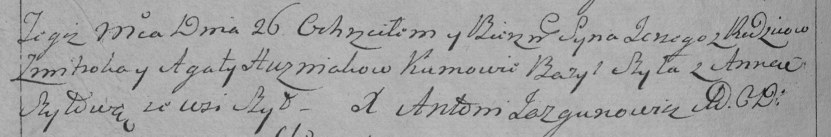 Tegoż Mca Dnia 26 Ochrzciłem y Bierzm Syna Jerzego z Rodzicow
Zmitroka y Agaty Huzniakow Kumowie Bazyl Ryła z Anną
Ryłową ze wsi Rył – X Antoni Jazgunowicz A. D: